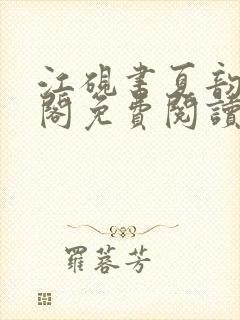 江硯書夏韵
閣免費閱讀
羅蓉芳